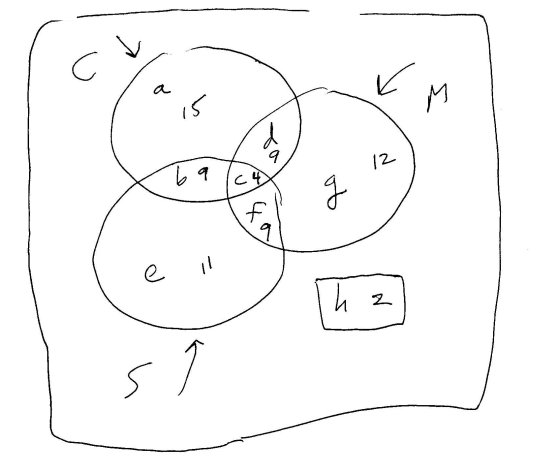 C
M
a
15
d
9
b 9
c 4
12
g
f
9
e 11
h 2
S